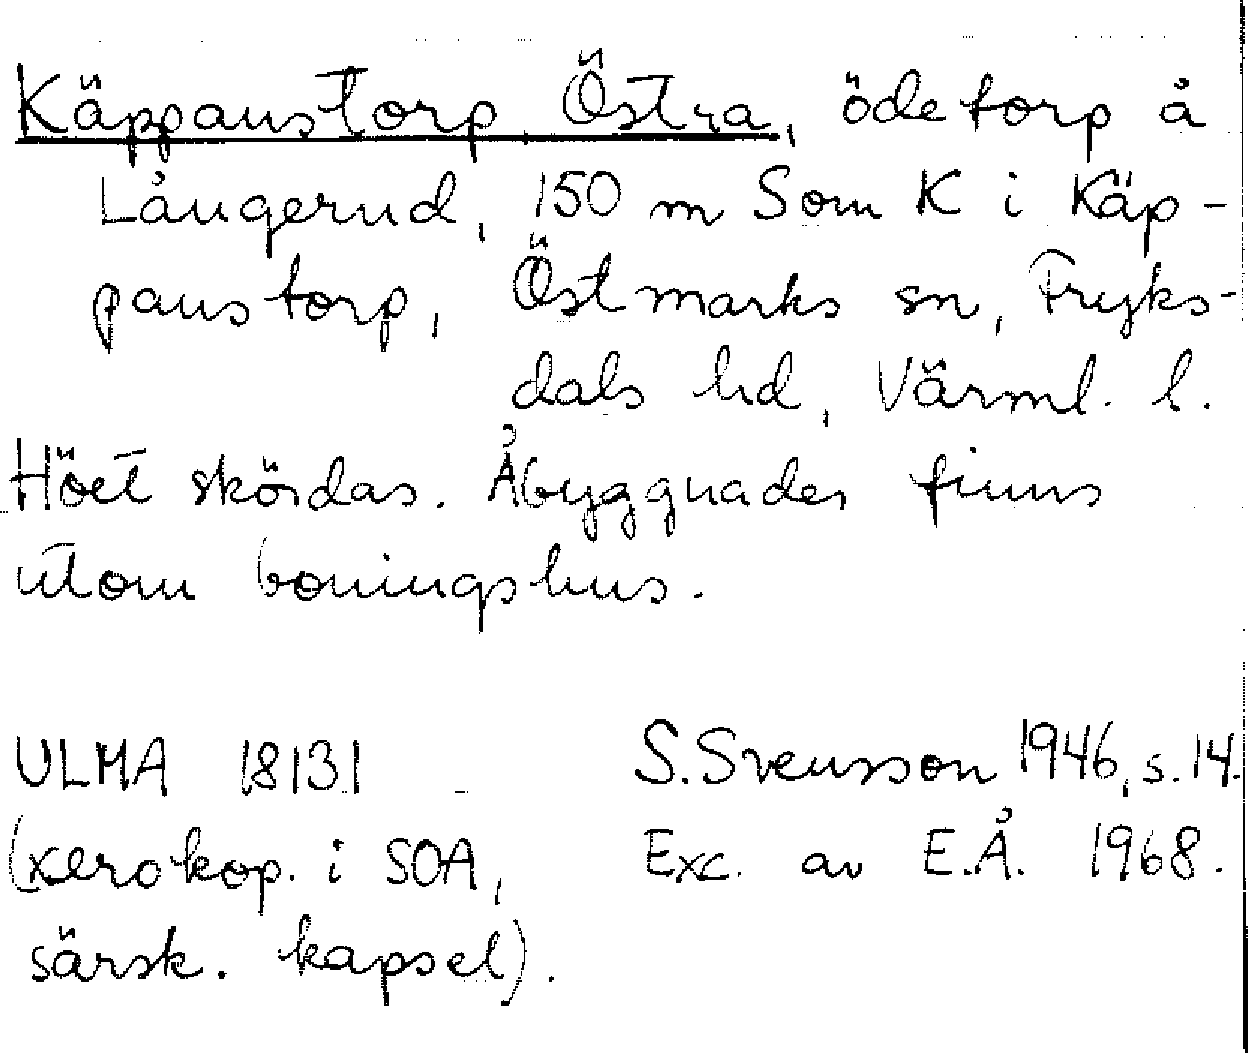 Käppaustorp, Östra, ödetorp å
Långerud, 150 m S om K i Käp-
paustorp, Östmarks sn, Fryks-
dals hd, Värml. l.
Höet skördas. Åbyggnader finns
utom boningshus.
ULMA 18131 S. Svensson 1946, s. 14.
(xerokop. i SOA, Exc. av E.Å. 1968.
särsk. kapsel).